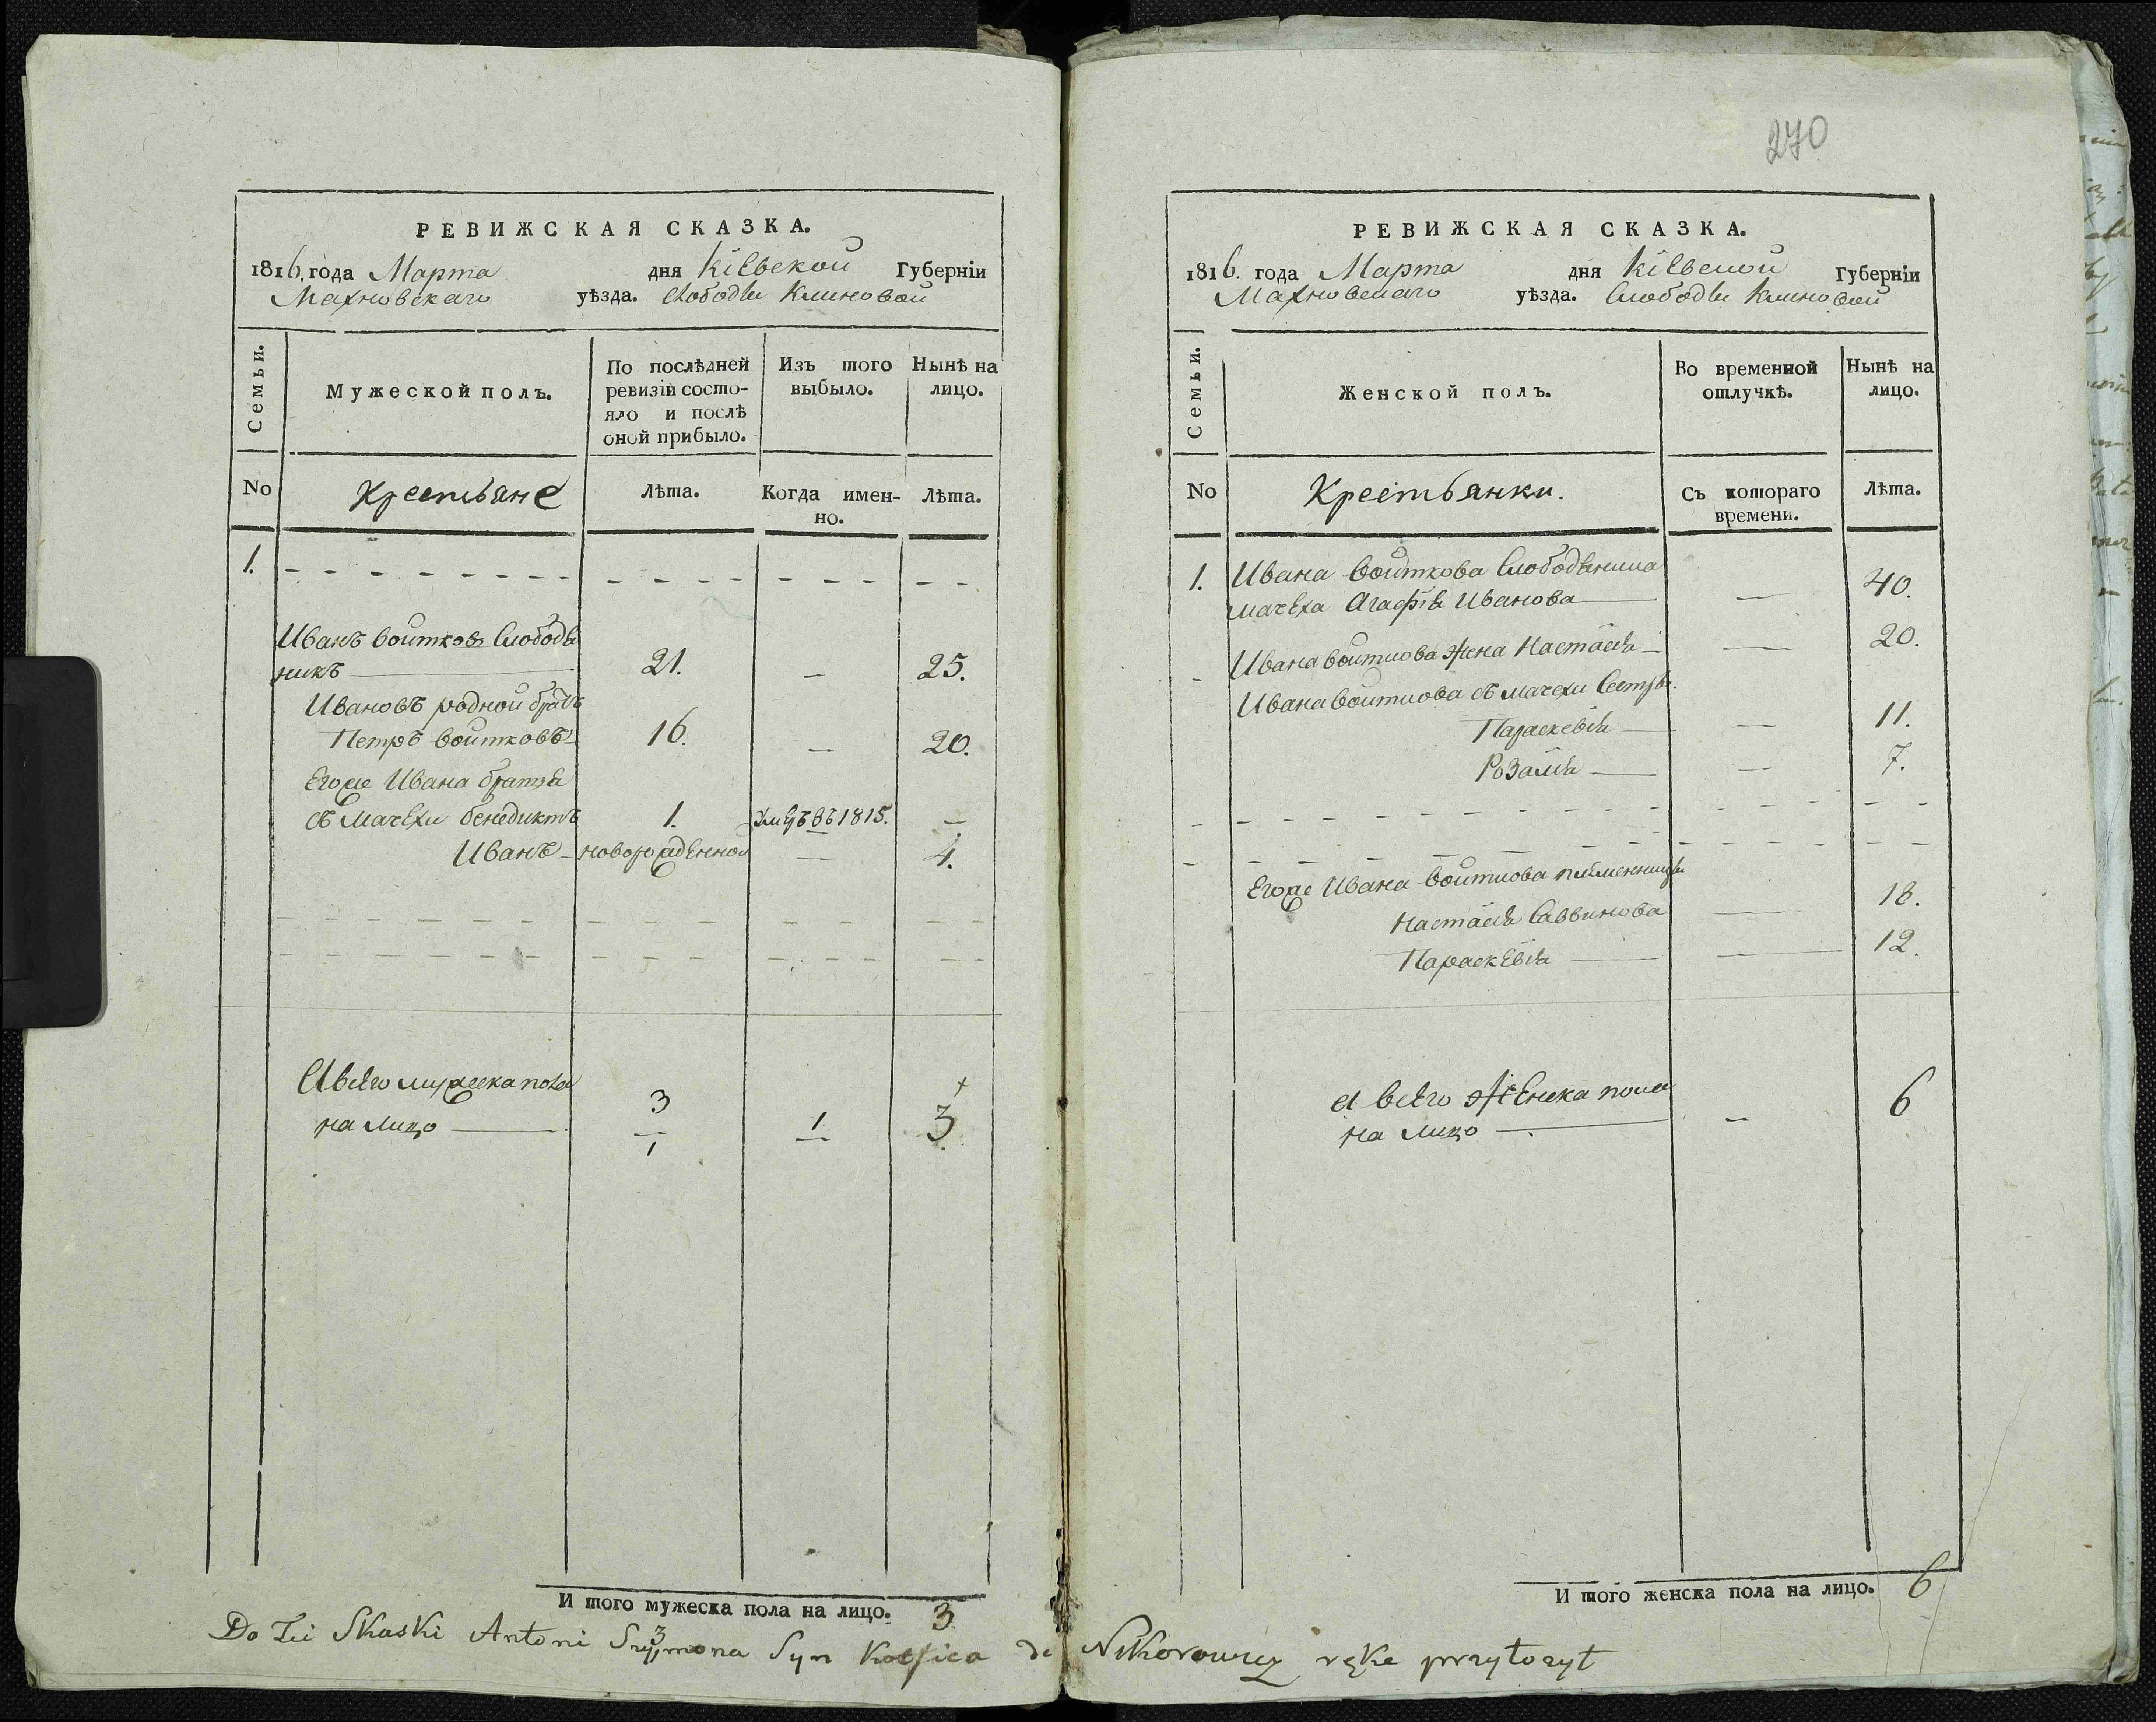 РЕВИЖСКАЯ СКАЗКА.
1816. года Марта дня Кіевской Губерніи
Махновскаго уѣзда. слободы Клиновой
Семьи.
Мужеской полъ.
По послѣдней
ревизіи состо-
яло и послѣ
оной прибыло.
Изъ того
выбыло.
Нынѣ на
лицо.
No
Крестьяне
Лѣта.
Когда имен-
но.
Лѣта.
1.
Иванъ Войтковъ Слободя
никъ 21. — 25.
Ивановъ родной братъ
Петръ Войтковъ 16. — 20.
Егоже Ивана братья
съ мачехи Бенедиктъ 1. въ 1815. —
Иванъ новорожденной — 4.
А всего мужеска пола
на лицо 3 1 1 3
И того мужеска пола на лицо. 3.
270
РЕВИЖСКАЯ СКАЗКА.
1816. года Марта дня Кіевской Губерніи
Махновскаго уѣзда. Слободы Клиновой
Семьи.
Женской полъ.
Во временной
отлучкѣ.
Нынѣ на
лицо.
No
Крестьянки.
Съ котораго
времени.
Лѣта.
1. Ивана Войткова Слободяника
мачеха Агафія Иванова — 40.
Ивана Войткова жена Настасія — 20.
Ивана Войткова съ мачехи Сестры.
Параскевія — 11.
Розалія — 7.
Егоже Ивана Войткова племенницы
Настасія Саввинова — 18.
Параскевія — 12.
А всего женска пола
на лицо — 6
И того женска пола на лицо. 6
Do Tei Skaski Antoni Szymona Syn ręke przyłozył